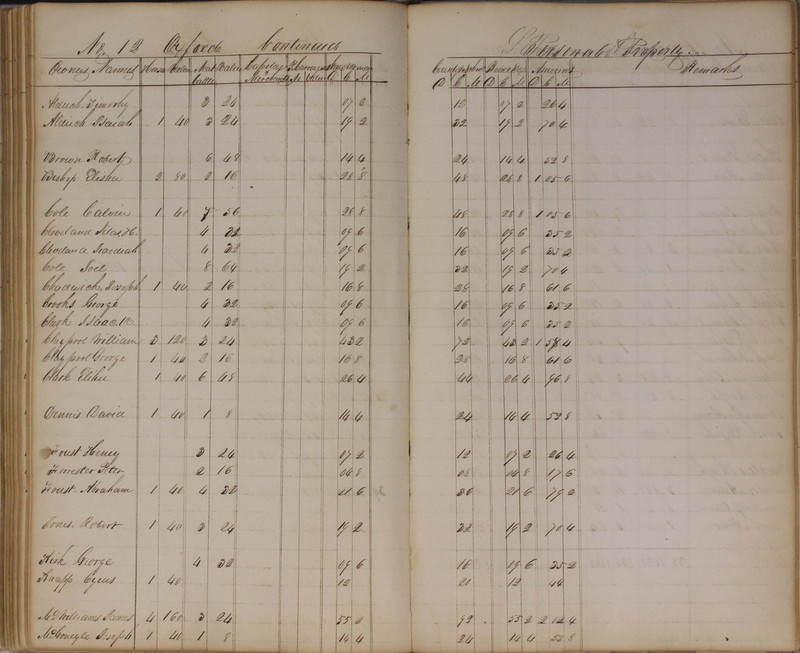 No 12 Oxford Continued
Personal Property
Owners Names Horses Value Neat Cattle Value Capital of Merchants Value State Amount County Amount Amount Remarks
Aldrich Timothy 3 24 07 2 12 07 2 26 4
Aldrich Isaiah 1 40 3 24 19 2 32 19 2 70 4
Brown Robert 6 48 14 4 24 14 4 52 8
Bishop Elisha 2 80 2 16 28 8 48 28 8 1 05 6
Cole Calvin 1 40 7 56 28 8 48 28 8 1 05 6
4 32 09 6 16 09 6 35 2
4 32 09 6 16 09 6 35 2
Cole Joel 8 64 19 2 32 19 2 70 4
Joseph 1 40 2 16 16 8 28 16 8 61 6
Crooks George 4 32 09 6 16 09 6 35 2
Isaac 4 32 09 6 16 09 6 35 2
Claypool William 3 120 3 24 43 2 72 43 2 1 58 4
Claypool George 1 40 2 16 16 8 28 16 8 61 6
Clark Elihu 1 40 6 48 26 4 44 26 4 96 8
Dennis David 1 40 1 8 14 4 24 14 4 52 8
Foust Henry 3 24 07 2 12 07 2 26 4
Forrester 2 16 04 8 08 04 8 17 6
Foust Abraham 1 40 4 32 21 6 36 21 6 79 2
Jones Robert 1 40 3 24 19 2 32 19 2 70 4
Kirk George 4 32 09 6 16 09 6 35 2
Knapp Cyrus 1 40 12 20 12 44
McWilliams James 4 160 3 24 55 2 92 55 2 2 02 4
Joseph 1 40 1 8 14 4 24 14 4 52 8